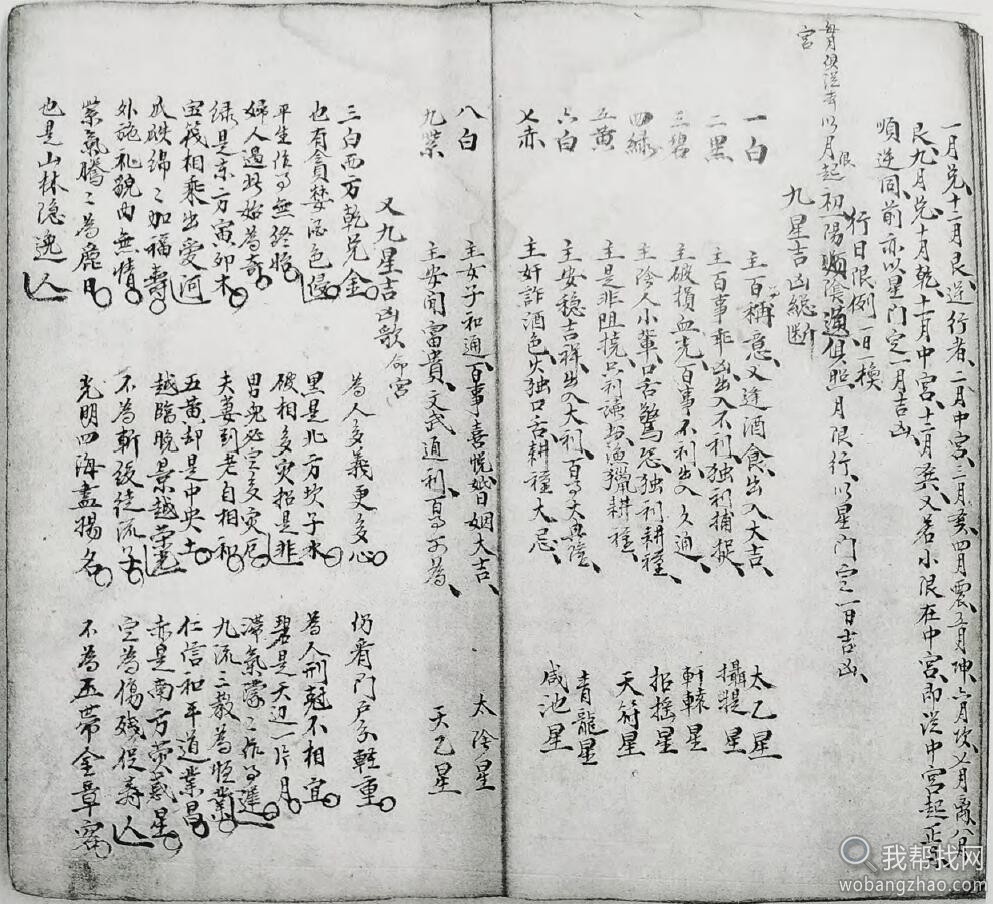 一月兑、十二月艮、逆行者、二月中宮、三月𢀖、四月震、五月坤、六月坎、七月离、八月
艮、九月兑、十月乾、十一月中宮、十二月巽、又若小限在中宮、即從中宮起正月
順逆同前亦以星門定一月吉凶、
行日限例 一日一換
每月俱從本以月限起初一陽順陰逆俱照月限行、以星門定一日吉凶、
宮
九星吉凶総断
一白 主百稱意、又逢酒食、出入大吉、 太乙星
二黑 主百事乖凶、出入不利、独利捕捉、 攝提星
三碧 主破損血光、百事不利、出入久通、 軒轅星
四緑 主陰人小輩、口舌驚恐、独利耕種、 招揺星
五黄 主是非阻撓、只利漁獵耕種、 天符星
六白 主安穏吉祥、出入大利、百事大興隆、 青龍星
七赤 主奸詐酒色、火独口舌、耕種大忌、 咸池星
八白 主女子和通、百事喜悦、婚姻大吉、 太陰星
九紫 主安閒富貴、文武通利、百事可為、 天乙星
又九星吉凶歌 命宮
三白西方乾兑金 為人多義更多心 仍看門戶家輕重
也有貪婪酒色侵 黑是北方坎子水 為人刑尅不相宜
平生作事無終始 破相多灾招是非 碧是天边一片月
婦人遇此始為奇 男兒必定多灾厄 滞氣濛濛作事遲
緑是东方寅卯木 夫妻到老自相和 九流二教為恒業
宝筏相乘出爱河 五黄却是中央土 仁信和平道業昌
瓜瓞綿綿加福壽 越臨晚景越荣光 赤是南方荧惑星
外施礼貌内無情 不為斬绞徒流子 定為傷残促寿人
紫氣騰騰為麗日 光明四海盡揚名 不為玉帶金章客
也是山林隐逸人
我帮找网
wobangzhao.com